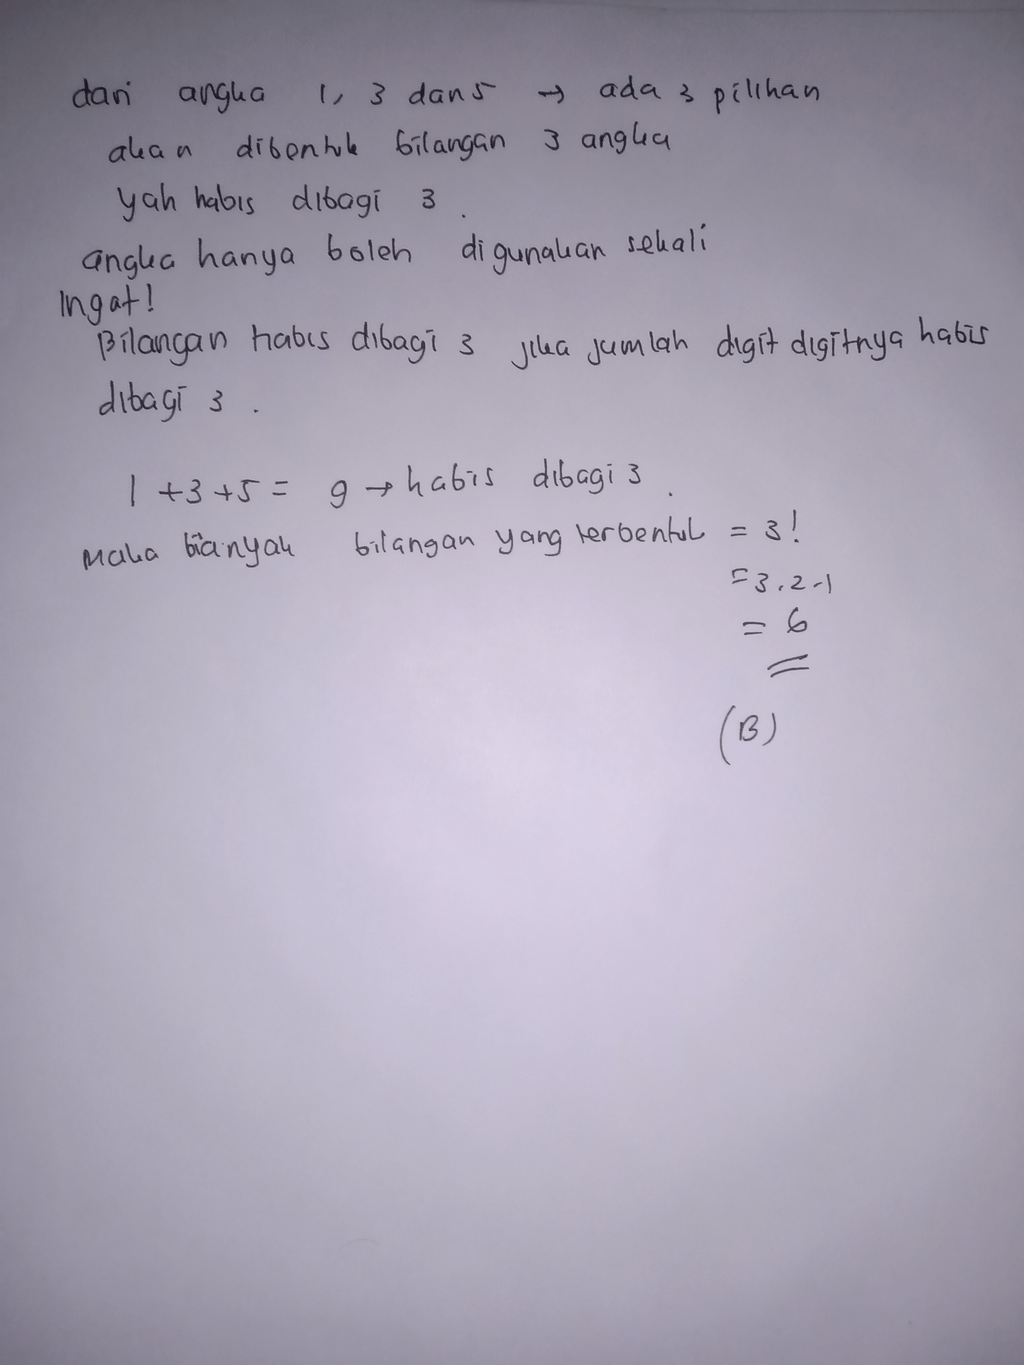 dari angka 1, 3 dan 5 → ada 3 pilihan
akan dibentuk bilangan 3 angka
yah habis dibagi 3.
angka hanya boleh digunakan sekali
Ingat!
Bilangan habis dibagi 3 jika jumlah digit digitnya habis
dibagi 3.
1 + 3 + 5 = 9 → habis dibagi 3.
Maka banyak bilangan yang terbentuk = 3!
= 3.2.1
= 6
(B)